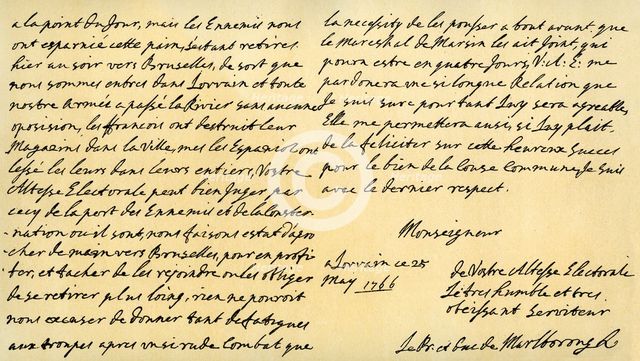 a la point du Jour, mais les Ennemis nous
ont esparnié cette pain, séstant retires
hier au soir vers Bruselles, de sort que
nous sommes entres dans Lovvain et toute
nostre Armée a passé la Rivier sans aucune
oposision, les francois ont destruit leur
Magazins dans la Ville, mes les Espagnols ont
lessé les leurs dans leurs entiers, Vostre
Altesse Electorale peut bien Juger par
cecy de la port des Ennemis et de la Conster-
nation ou il sont, nous faisons estat d'apro-
cher demain vers Bruselles, pour en profi-
ter, et tacher de les rejoindre ou les obliger
de se retirer plus loing, rien ne pouvoit
nous excuser de donner tant de fatigues
aux troupes apres un si rude Combat que
la necessity de les pousser a bout avant que
le Mareshal de Marsin les ait Joint, qui
poura estre en quatre Jours, V: A: E: me
pardonera une si longue Relation que
Je suis sure pour tant Luy sera agreable,
Elle me permettera ausi, si Luy plait
de la feliciter sur cette heureux Succes
pour le bien de la Cause Commune, Je suis
avec le dernier respect.
Monseigneur
a Lovvain ce 25
May 1706
de Vostre Altesse Electorale
Le tres humble et tres
obeissant Serviteur
Le Pr. et Duc de Marlborough